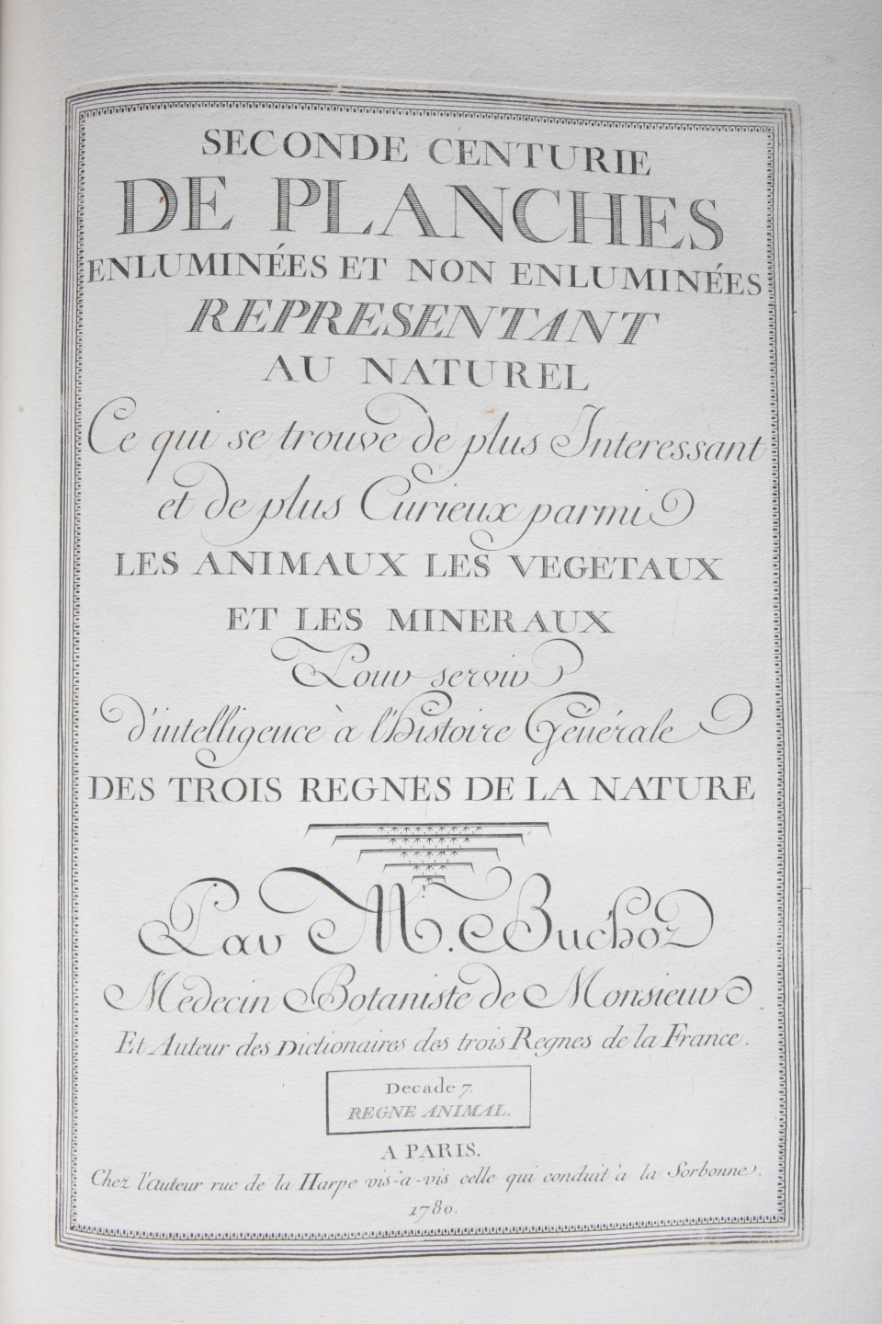 SECONDE CENTURIE
DE PLANCHES
ENLUMINÉES ET NON ENLUMINÉES
REPRESENTANT
AU NATUREL
Ce qui se trouve de plus Interessant
et de plus Curieux parmi
LES ANIMAUX LES VEGETAUX
ET LES MINERAUX
Pour servir
d'intelligence à l'histoire Générale
DES TROIS REGNES DE LA NATURE
Par M. Buc'hoz
Médecin Botaniste de Monsieur
Et Auteur des Dictionaires des trois Regnes de la France.
Decade 7.
REGNE ANIMAL.
A PARIS.
Chez l'auteur rue de la Harpe vis-à-vis celle qui conduit à la Sorbonne.
1780.